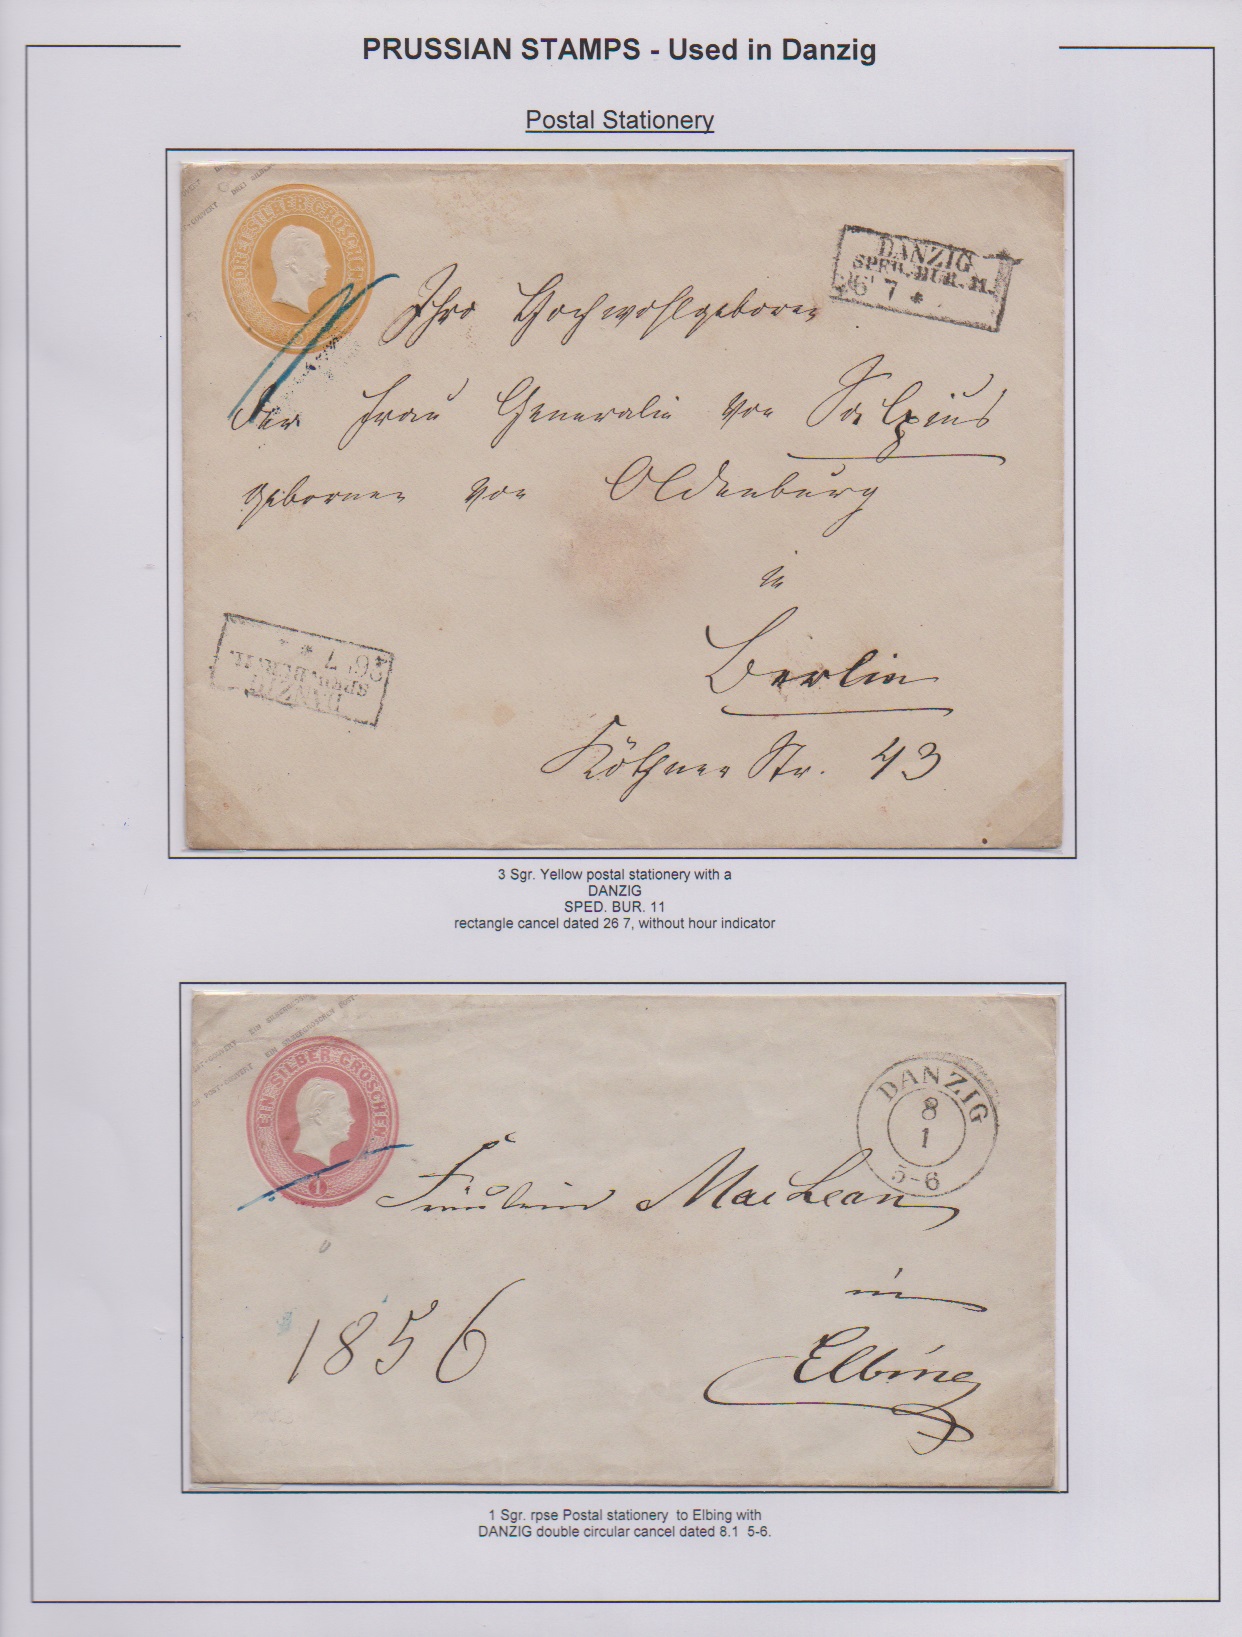 PRUSSIAN STAMPS - Used in Danzig
Postal Stationery
DREI SILBER GROSCHEN
DANZIG
SPED. BUR. 11.
26 7 *
Ihro Hochwohlgeboren
der Frau Generalin von
geborenen von Oldenburg
in
Berlin
Köthner Str. 43
DANZIG
SPED. BUR. 11.
26 7 *
3 Sgr. Yellow postal stationery with a
DANZIG
SPED. BUR. 11
rectangle cancel dated 26 7, without hour indicator
EIN SILBERGROSCHEN POST-COUVERT
EIN SILBER GROSCHEN
1
DANZIG
8
1
5-6
Fräulein MacLean
in
Elbing
1856
1 Sgr. rpse Postal stationery to Elbing with
DANZIG double circular cancel dated 8.1 5-6.